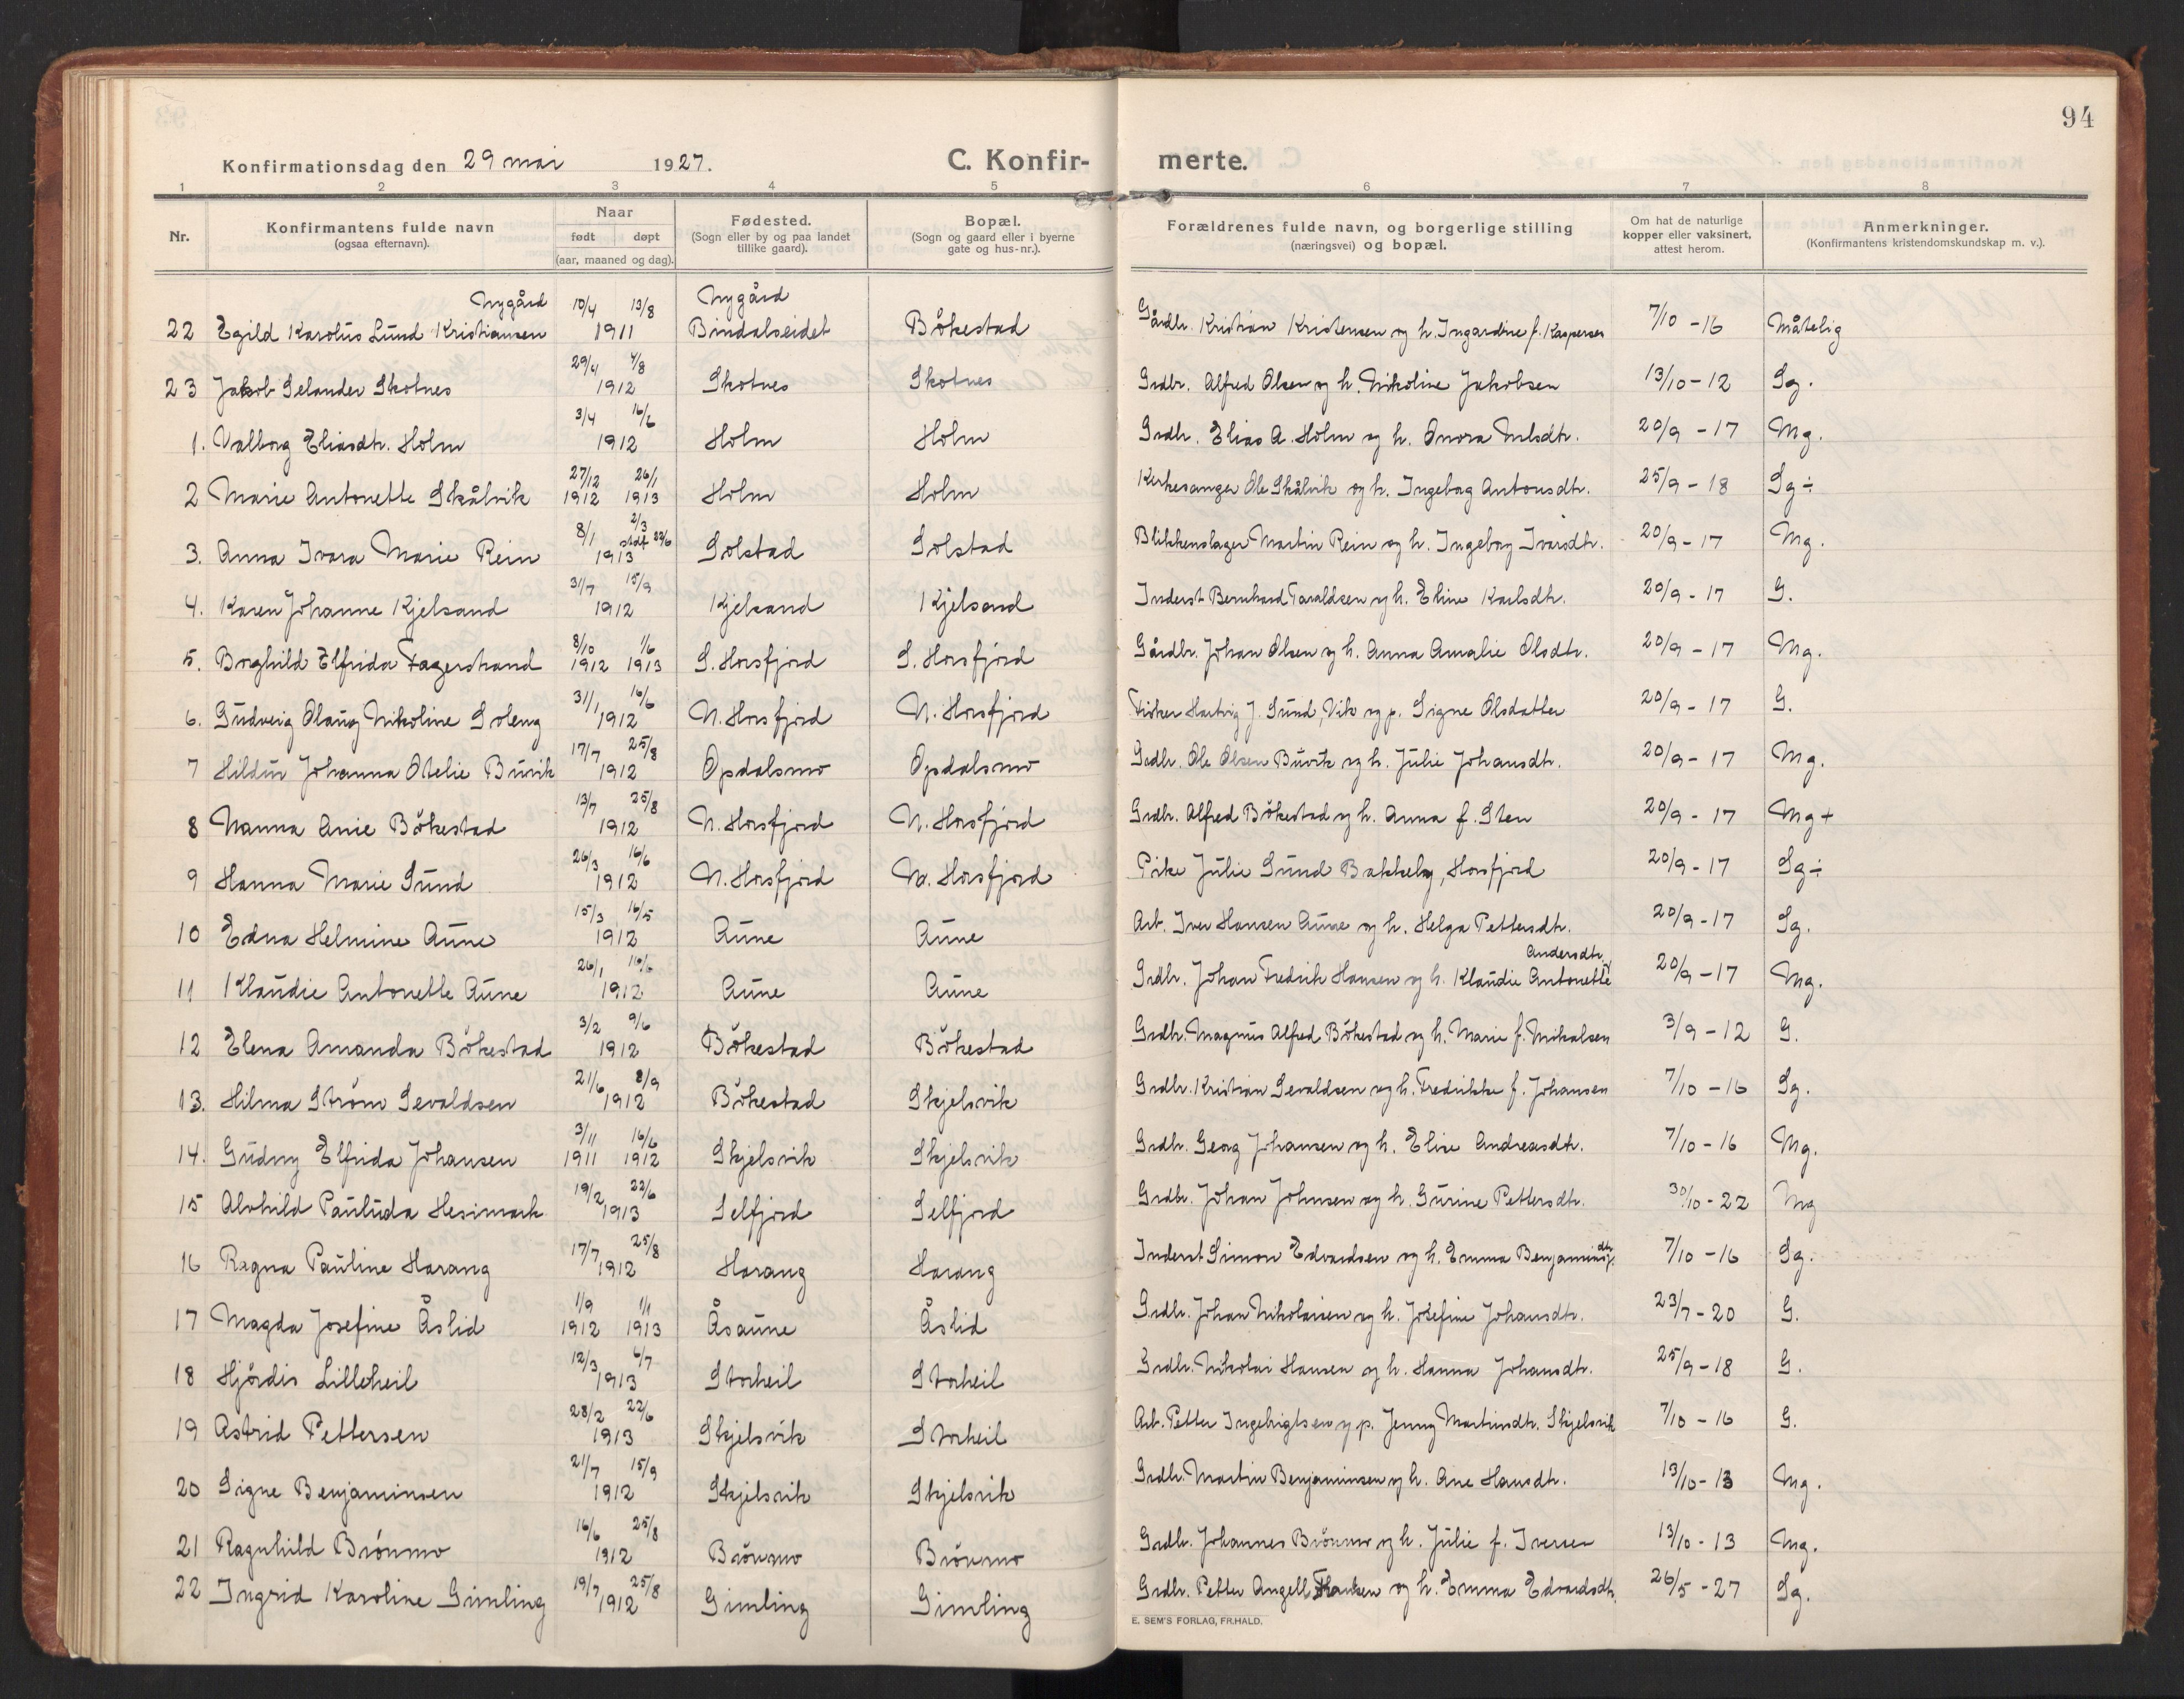 94
Konfirmationsdag den 29 mai 1927. C. Konfirmerte.
1 2 3 4 5 6 7 8
Nr. Konfirmantens fulde navn (ogsaa efternavn). Naar født døpt (aar, maaned og dag). Fødested. (Sogn eller by og paa landet tillike gaard). Bopæl. (Sogn og gaard eller i byerne gate og hus-nr.). Forældrenes fulde navn, og borgerlige stilling (næringsvei) og bopæl. Om hat de naturlige kopper eller vaksinert, attest herom. Anmerkninger. (Konfirmantens kristendomskundskap m. v.).
Nygård 10/4 13/8 Nygård
22 Egild Karolus Lund Kristiansen 1911 Bindalseidet Bökestad Gårdbr. Kristian Kristensen og h. Ingardine f. Kaspersen 7/10 - 16 Måtelig
29/4 4/8
23 Jakob Selander Skotnes 1912 Skotnes Skotnes Grdbr. Alfred Olsen og h. Nikoline Jakobsen 13/10 - 12 Sg.
3/4 16/6
1. Valborg Eliasdtr. Holm 1912 Holm Holm Grdbr. Elias A. Holm og h. Anora Nilsdtr. 20/9 - 17 Mg.
27/12 26/1
2 Marie Antonette Skålvik 1912 1913 Holm Holm Kirkesanger Ole Skålvik og h. Ingeborg Antonsdtr. 25/9 - 18 Sg ÷
8/1 2/3 stdf 22/6
3. Anna Ivara Marie Rein 1913 Solstad Solstad Blikkenslager Martin Rein og h. Ingeborg Ivarsdtr. 20/9 - 17 Mg.
31/7 15/9
4. Karen Johanne Kjelsand 1912 Kjelsand Kjelsand Inderst Bernhard Taraldsen og h. Eline Karlsdtr. 20/9 - 17 G.
8/10 1/6
5. Borghild Elfrida Fagerstrand 1912 1913 S. Horsfjord S. Horsfjord Gårdbr. Johan Olsen og h. Anna Amalie Olsdtr. 20/9 - 17 Mg.
31/1 16/6
6. Gudveig Olaug Nikoline Soleng 1912 N. Horsfjord N. Horsfjord Fisker Hartvig J. Sund, Vik og p. Signe Olsdatter 20/9 - 17 G.
17/7 25/8
7 Hildur Johanna Otelie Buvik 1912 Opdalsmo Opdalsmo Grdbr. Ole Olsen Buvik og h. Julie Johansdtr. 20/9 - 17 Mg.
13/7 25/8
8 Nanna Anie Bökestad 1912 N. Horsfjord N. Horsfjord Grdbr. Alfred Bökestad og h. Anna f. Sten 20/9 - 17 Mg +
26/3 16/6
9 Hanna Marie Sund 1912 N. Horsfjord N. Horsfjord Pike Julie Sund Bakkeby, Horsfjord 20/9 - 17 Sg ÷
15/3 16/5
10 Edna Helmine Aune 1912 Aune Aune Arb. Iver Hansen Aune og h. Helga Pettersdtr. 20/9 - 17 Sg.
26/1 Andersdtr.
11 Klaudie Antonette Aune 1912 Aune Aune Grdbr. Johan Fredrik Hansen og h. Klaudie Antonette 20/9 - 17 Mg.
3/2 9/6
12 Elena Amanda Bökestad 1912 Bökestad Bökestad Grdbr. Magnus Alfred Bökestad og h. Marie f. Mikalsen 3/9 - 12 G.
21/6 8/9
13. Hilma Strøm Sevaldsen 1912 Bökestad Skjelsvik Grdbr. Kristian Sevaldsen og h. Fredrikke f. Johansen 7/10 - 16 Sg.
3/11 16/6
14. Gudny Elfrida Johansen 1911 1912 Skjelsvik Skjelsvik Grdbr. Georg Johansen og h. Elise Andreasdtr. 7/10 - 16 Mg.
19/2 22/6
15 Alvhild Paulida Hesimark 1913 Selfjord Selfjord Grdbr. Johan Johnsen og h. Gurine Pettersdtr. 30/10 - 22 Mg
17/7 25/8
16 Ragna Pauline Harang 1912 Harang Harang Inderst Simon Edvardsen og h. Emma Benjaminsdtr. 7/10 - 16 Sg.
1/9 1/1
17 Magda Josefine Åslid 1912 1913 Åsaune Åslid Grdbr. Johan Nikolaisen og h. Josefine Johansdtr. 23/7 - 20 G.
12/3 6/7
18 Hjördis Lilleheil 1913 Storheil Storheil Grdbr. Nikolai Hansen og h. Hanna Johansdtr. 25/9 - 18 G.
28/2 22/6
19 Astrid Pettersen 1913 Skjelsvik Storheil Arb. Petter Ingebrigtsen og p. Jenny Martinsdtr. Skjelsvik 7/10 - 16 G.
21/7 15/9
20 Signe Benjaminsen 1912 Skjelsvik Skjelsvik Grdbr. Martin Benjaminsen og h. Ane Hansdtr. 13/10 - 13 Mg.
16/6 25/8
21 Ragnhild Brönmo 1912 Brönmo Brönmo Grdbr. Johannes Brönmo og h. Julie f. Iversen 13/10 - 13 Mg.
19/7 25/8
22 Ingrid Karoline Gimling 1912 Gimling Gimling Grdbr. Petter Angell og h. Emma Edvardsdtr. 26/5 - 27 Sg.
E. SEM'S FORLAG, FR.HALD.